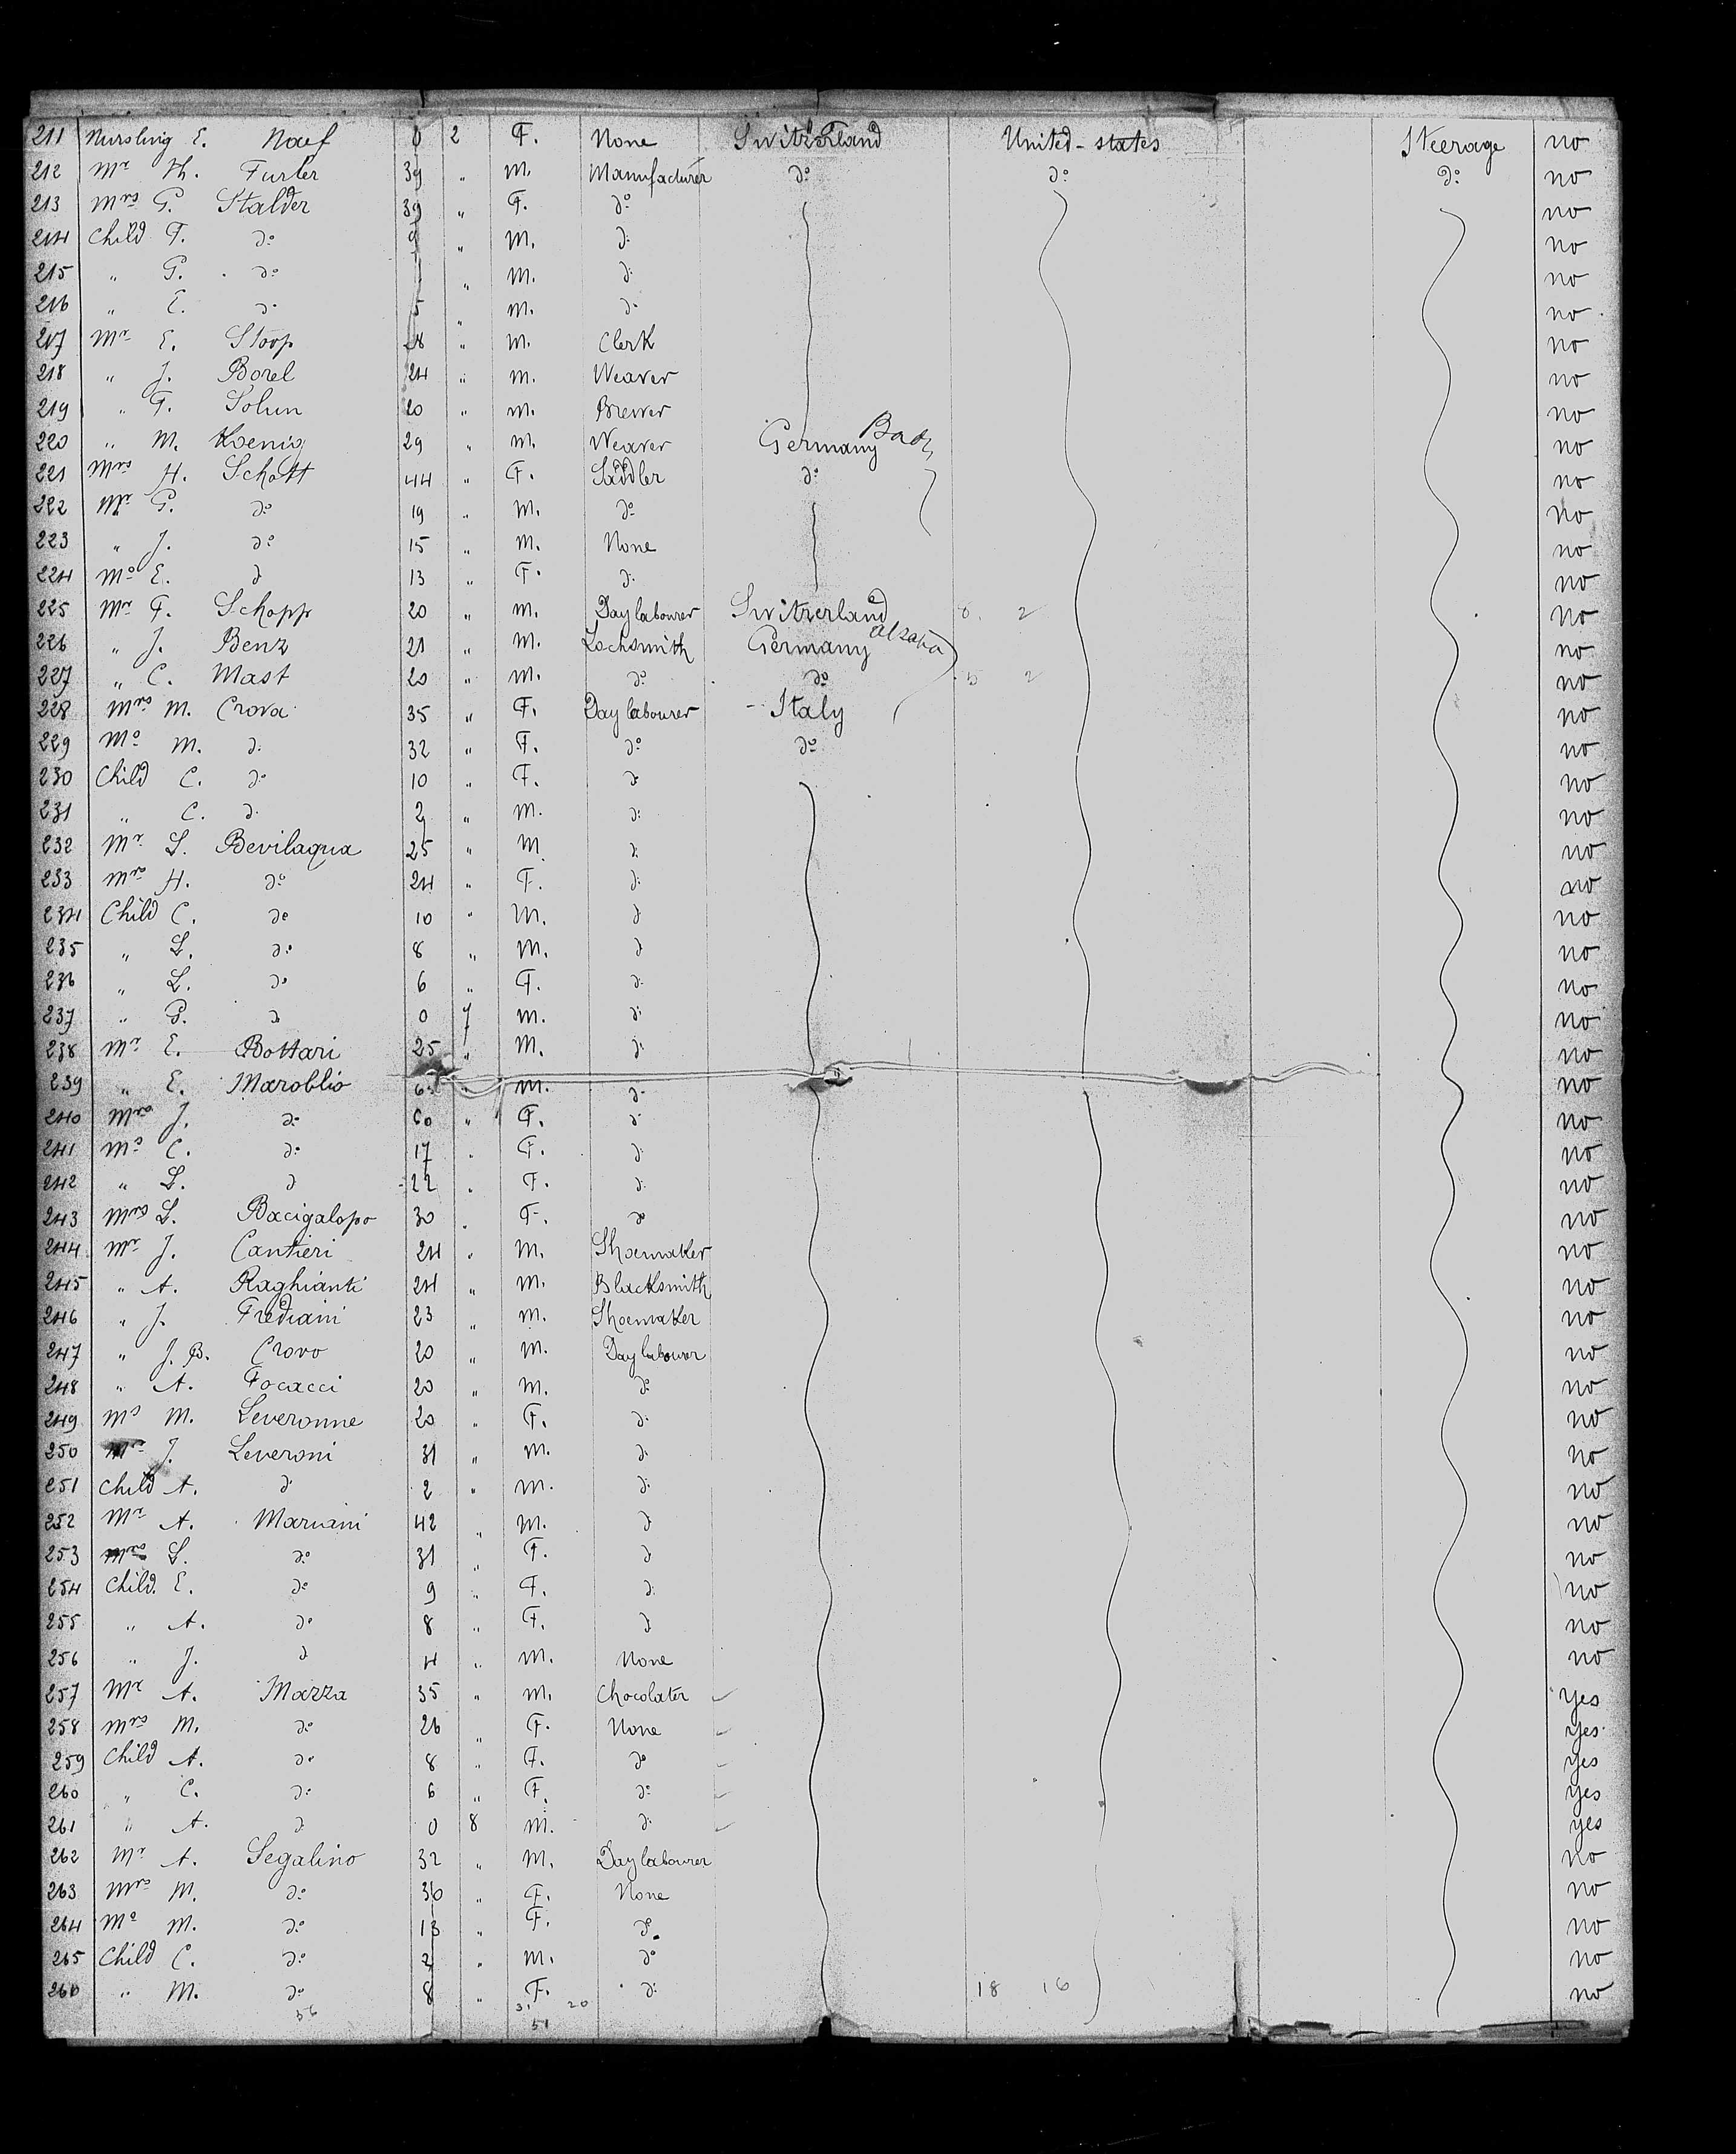 211 Nursling E. Naef 0 2 F. None Switzerland United-states Steerage no
212 Mr Th. Furler 39 " M. Manufacturer do do do no
213 Mrs G. Stalder 39 " F. do no
214 Child F. do 9 " M. do no
215 " G. do " M. do no
216 " E. do 5 " M. do no
217 Mr E. Stoop 28 " M. Clerk no
218 " J. Borel 24 " M. Weaver no
219 " F. Solun 20 " M. Brewer no
220 " M. Koenig 29 " M. Weaver Germany Bad no
221 Mrs H. Schott 44 " F. Saddler do no
222 Mr G. do 19 " M. do no
223 " J. do 15 " M. None no
224 Ms E. do 13 " F. do no
225 Mr F. Schopp 20 " M. Day labourer Switzerland 8. 2 no
226 " J. Benz 21 " M. Locksmith Germany alsatia no
227 " C. Mast 20 " M. do do 5 2 no
228 Mrs M. Crova 35 " F. Day labourer - Italy no
229 Ms M. do 32 " F. do do no
230 Child C. do 10 " F. do no
231 " C. do 2 " M. do no
232 Mr S. Bevilaqua 25 " M do no
233 Mrs H. do 24 " F. do no
234 Child C. do 10 " M. do no
235 " L. do 8 " M. do no
236 " L. do 6 " F. do no
237 " G. do 0 7 M. do no
238 Mr E. Bottari 25 " M. do no
239 " E. Maroblio " M. do no
240 Mrs J. do 60 " F. do no
241 Ms C. do 17 " F. do no
242 " L. do 22 " F. do no
243 Mrs L. Bacigalopo 30 " F. do no
244 Mr J. Cantieri 24 " M. Shoemaker no
245 " A. Raghianti 24 " M. Blacksmith no
246 " J. Frediani 23 " M. Shoemaker no
247 " J. B. Crovo 20 " M. Day labourer no
248 " A. Focacci 20 " M. do no
249 Ms M. Leveronne 20 " F. do no
250 Mr J. Leveroni 31 " M. do no
251 Child A. do 2 " M. do no
252 Mr A. Mariani 42 " M. do no
253 Mrs L. do 31 " F. do no
254 Child E. do 9 " F. do no
255 " A. do 8 " F. do no
256 " J. do 4 " M. None no
257 Mr A. Mazza 35 " M. Chocolater yes
258 Mrs M. do 26 " F. None yes
259 Child A. do 8 " F. do yes
260 " C. do 6 " F. do yes
261 " A. do 0 8 M. do yes
262 Mr A. Segalino 32 " M. Day labourer no
263 Mrs M. do 36 " F. None no
264 Ms M. do 13 " F. do no
265 Child C. do 2 " M. do no
266 " M. do 8 " F. do 18 16 no
56 31 20
51